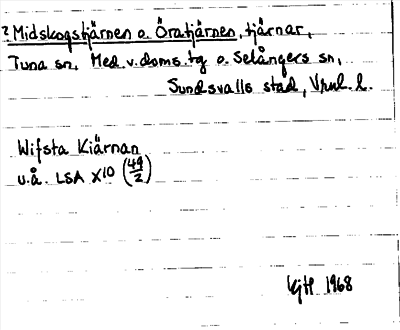 ? Midskogstjärnen o. Öratjärnen, tjärnar,
Tuna sn, Med. v. doms. tg o. Selångers sn,
Sundsvalls stad, Vrnl. l.
Wifsta Kiärnan
u.å. LSA X10 (49/2)
GH 1968